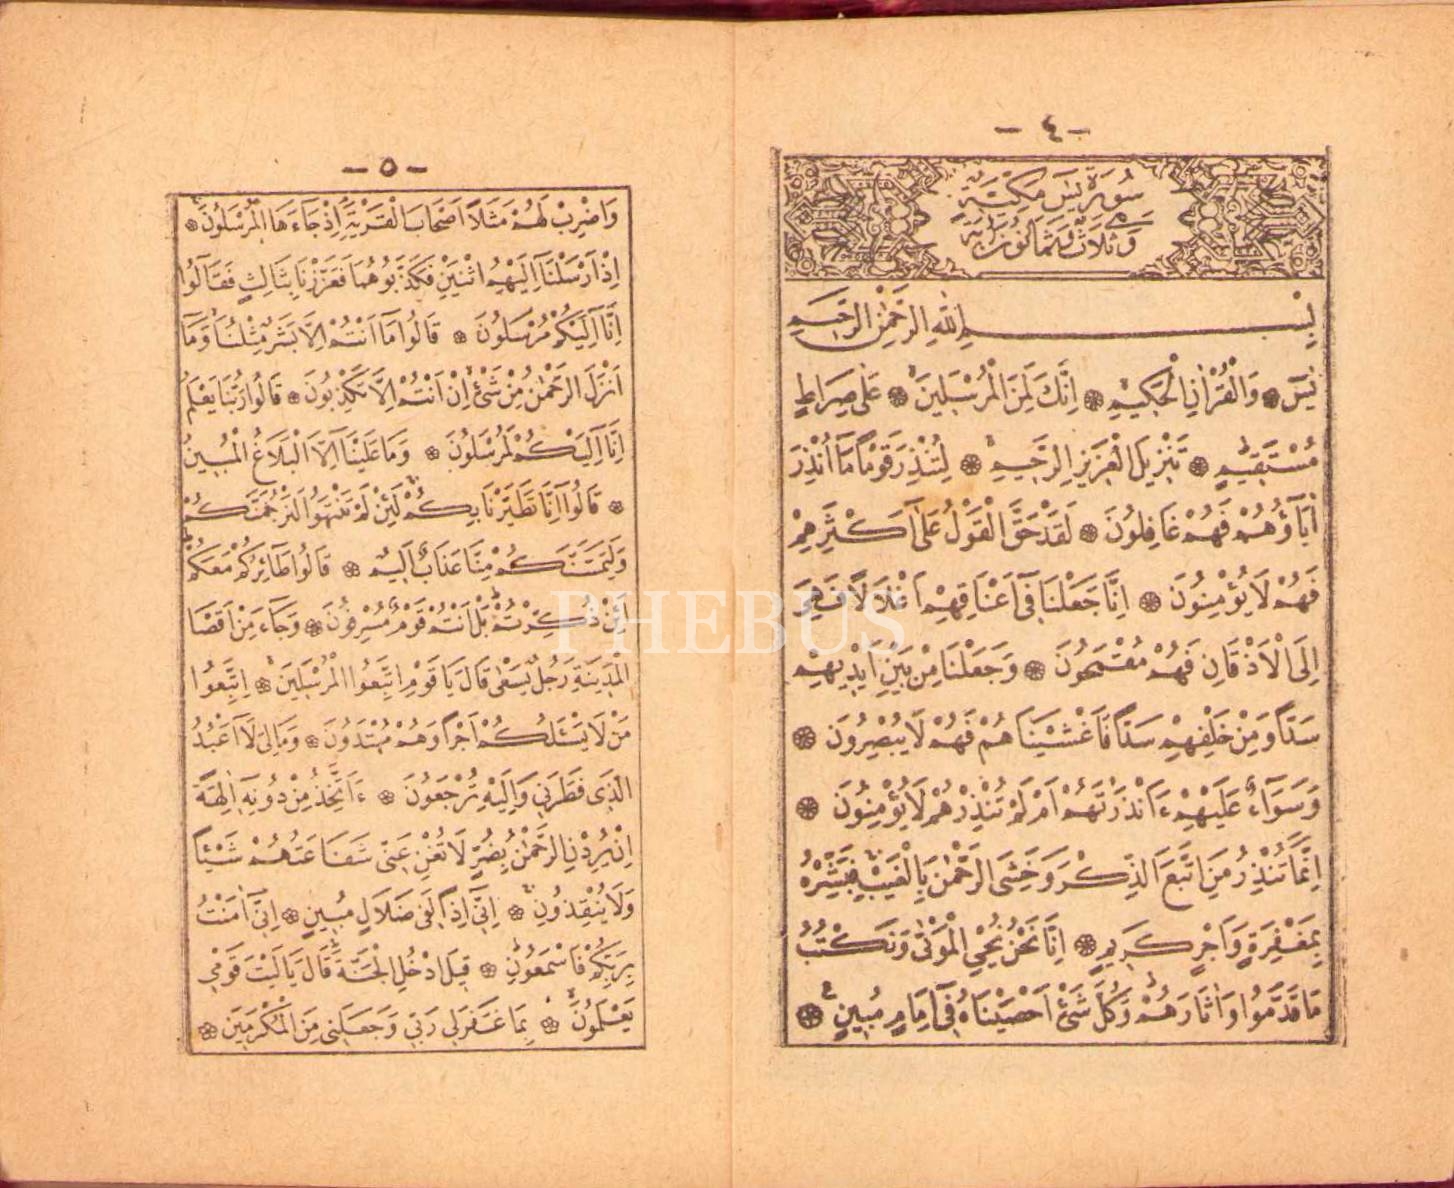 - ٤ -
سُورَةُ يٰسٓ مَكِّيَّةٌ
وَهِيَ ثَلَاثٌ وَثَمَانُونَ اٰيَةً
بِسْمِ اللّٰهِ الرَّحْمٰنِ الرَّحٖيمِ
يٰسٓ ۞ وَالْقُرْاٰنِ الْحَكٖيمِ ۞ اِنَّكَ لَمِنَ الْمُرْسَلٖينَ ۞ عَلٰى صِرَاطٍ
مُسْتَقٖيمٍ ۞ تَنْزٖيلَ الْعَزٖيزِ الرَّحٖيمِ ۞ لِتُنْذِرَ قَوْمًا مَا اُنْذِرَ
اٰبَاؤُهُمْ فَهُمْ غَافِلُونَ ۞ لَقَدْ حَقَّ الْقَوْلُ عَلٰى اَكْثَرِهِمْ
فَهُمْ لَا يُؤْمِنُونَ ۞ اِنَّا جَعَلْنَا فٖى اَعْنَاقِهِمْ اَغْلَالًا فَهِىَ
اِلَى الْاَذْقَانِ فَهُمْ مُقْمَحُونَ ۞ وَجَعَلْنَا مِنْ بَيْنِ اَيْدٖيهِمْ
سَدًّا وَمِنْ خَلْفِهِمْ سَدًّا فَاَغْشَيْنَاهُمْ فَهُمْ لَا يُبْصِرُونَ ۞
وَسَوَآءٌ عَلَيْهِمْ ءَاَنْذَرْتَهُمْ اَمْ لَمْ تُنْذِرْهُمْ لَا يُؤْمِنُونَ ۞
اِنَّمَا تُنْذِرُ مَنِ اتَّبَعَ الذِّكْرَ وَخَشِىَ الرَّحْمٰنَ بِالْغَيْبِ فَبَشِّرْهُ
بِمَغْفِرَةٍ وَاَجْرٍ كَرٖيمٍ ۞ اِنَّا نَحْنُ نُحْيِ الْمَوْتٰى وَنَكْتُبُ
مَا قَدَّمُوا وَاٰثَارَهُمْ وَكُلَّ شَىْءٍ اَحْصَيْنَاهُ فٖى اِمَامٍ مُبٖينٍ ۞
- ٥ -
وَاضْرِبْ لَهُمْ مَثَلًا اَصْحَابَ الْقَرْيَةِ اِذْ جَاءَهَا الْمُرْسَلُونَ ۞
اِذْ اَرْسَلْنَا اِلَيْهِمُ اثْنَيْنِ فَكَذَّبُوهُمَا فَعَزَّزْنَا بِثَالِثٍ فَقَالُوا
اِنَّا اِلَيْكُمْ مُرْسَلُونَ ۞ قَالُوا مَا اَنْتُمْ اِلَّا بَشَرٌ مِثْلُنَا وَمَا
اَنْزَلَ الرَّحْمٰنُ مِنْ شَىْءٍ اِنْ اَنْتُمْ اِلَّا تَكْذِبُونَ ۞ قَالُوا رَبُّنَا يَعْلَمُ
اِنَّا اِلَيْكُمْ لَمُرْسَلُونَ ۞ وَمَا عَلَيْنَا اِلَّا الْبَلَاغُ الْمُبٖينُ
۞ قَالُوا اِنَّا تَطَيَّرْنَا بِكُمْ لَئِنْ لَمْ تَنْتَهُوا لَنَرْجُمَنَّكُمْ
وَلَيَمَسَّنَّكُمْ مِنَّا عَذَابٌ اَلٖيمٌ ۞ قَالُوا طَائِرُكُمْ مَعَكُمْ
اَئِنْ ذُكِّرْتُمْ بَلْ اَنْتُمْ قَوْمٌ مُسْرِفُونَ ۞ وَجَاءَ مِنْ اَقْصَا
الْمَدٖينَةِ رَجُلٌ يَسْعٰى قَالَ يَا قَوْمِ اتَّبِعُوا الْمُرْسَلٖينَ ۞ اِتَّبِعُوا
مَنْ لَا يَسْئَلُكُمْ اَجْرًا وَهُمْ مُهْتَدُونَ ۞ وَمَا لِىَ لَا اَعْبُدُ
الَّذٖى فَطَرَنٖى وَاِلَيْهِ تُرْجَعُونَ ۞ ءَاَتَّخِذُ مِنْ دُونِهٖ اٰلِهَةً
اِنْ يُرِدْنِ الرَّحْمٰنُ بِضُرٍّ لَا تُغْنِ عَنّٖى شَفَاعَتُهُمْ شَيْئًا
وَلَا يُنْقِذُونِ ۞ اِنّٖى اِذًا لَفٖى ضَلَالٍ مُبٖينٍ ۞ اِنّٖى اٰمَنْتُ
بِرَبِّكُمْ فَاسْمَعُونِ ۞ قٖيلَ ادْخُلِ الْجَنَّةَ قَالَ يَا لَيْتَ قَوْمٖى
يَعْلَمُونَ ۞ بِمَا غَفَرَ لٖى رَبّٖى وَجَعَلَنٖى مِنَ الْمُكْرَمٖينَ ۞
PHEBUS